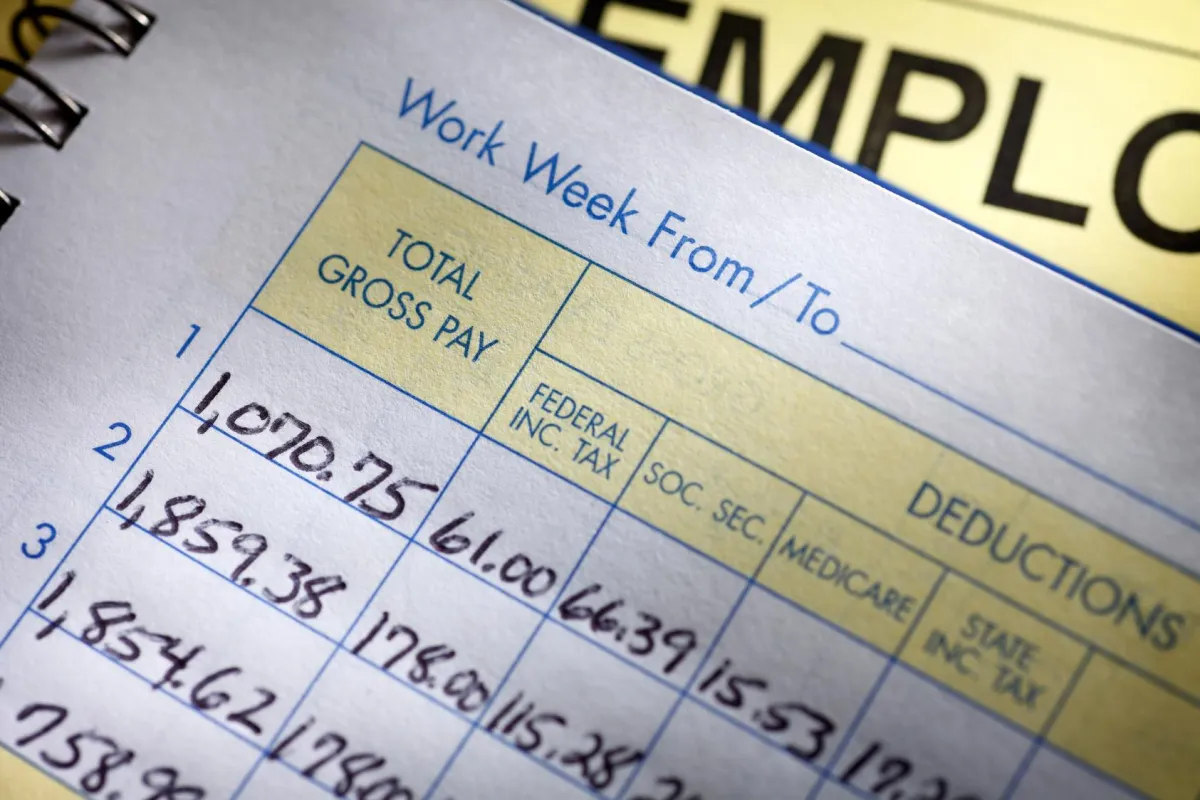 EMPLO
Work Week From/To
TOTAL
GROSS PAY
DEDUCTIONS
FEDERAL
INC. TAX
SOC. SEC.
MEDICARE
STATE
INC. TAX
1 1,070.75 61.00 66.39 15.53 17.2
2 1,859.38 178.00 115.28
3 1,854.62 178.0
758.9